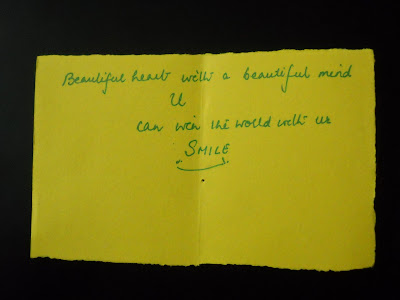 Beautiful heart with a beautiful mind
U
can win the world with ur
SMILE